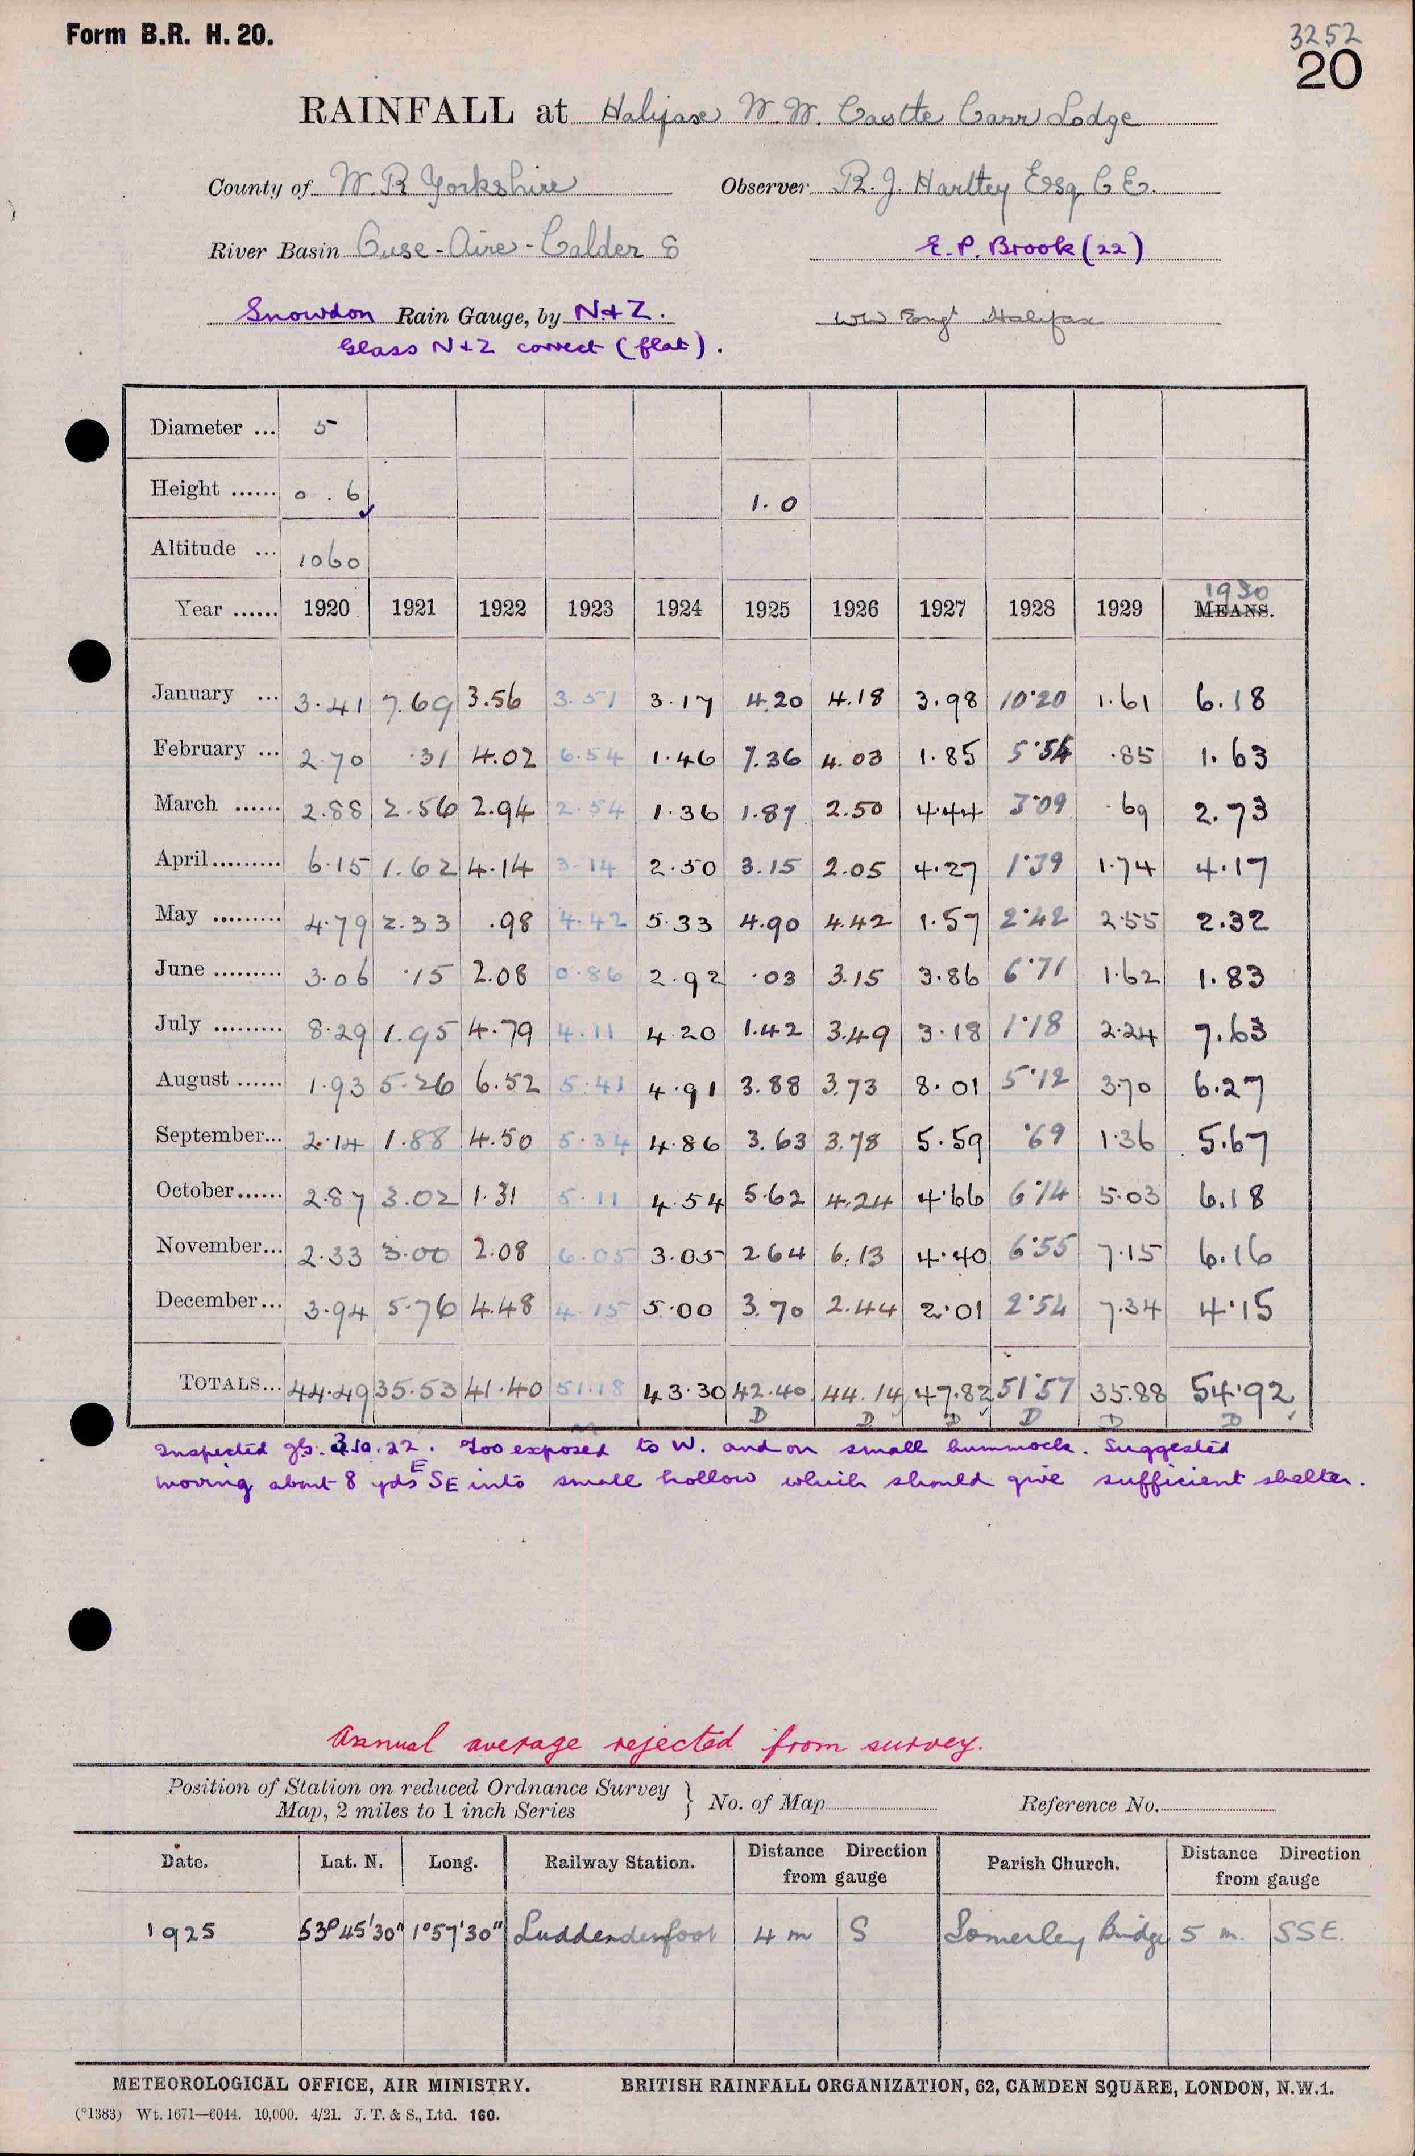 Form B.R. H. 20.
3252
20
RAINFALL at Halifax W.W. Castle Carr Lodge
County of W.R Yorkshire Observer R.J. Hartley Esq C.E.
River Basin Ouse-Aire-Calder 8 E.P. Brook (22)
Snowdon Rain Gauge, by N+Z. WW Engr Halifax
Glass N+Z correct (flat).
Diameter ... 5
Height ...... 0.6 1.0
Altitude ... 1060
Year ...... 1920 1921 1922 1923 1924 1925 1926 1927 1928 1929 MEANS. 1930
January ... 3.41 7.69 3.56 3.51 3.17 4.20 4.18 3.98 10.20 1.61 6.18
February ... 2.70 .31 4.02 6.54 1.46 7.36 4.03 1.85 5.54 .85 1.63
March ...... 2.88 2.56 2.94 2.54 1.36 1.87 2.50 4.44 3.09 .69 2.73
April ......... 6.15 1.62 4.14 3.14 2.50 3.15 2.05 4.27 1.39 1.74 4.17
May ......... 4.79 2.33 .98 4.42 5.33 4.90 4.42 1.57 2.42 2.55 2.32
June ......... 3.06 .15 2.08 0.86 2.92 .03 3.15 3.86 6.71 1.62 1.83
July ......... 8.29 1.95 4.79 4.11 4.20 1.42 3.49 3.18 1.18 2.24 7.63
August ...... 1.93 5.26 6.52 5.41 4.91 3.88 3.73 8.01 5.12 3.70 6.27
September... 2.14 1.88 4.50 5.34 4.86 3.63 3.78 5.59 .69 1.36 5.67
October...... 2.87 3.02 1.31 5.11 4.54 5.62 4.24 4.66 6.14 5.03 6.18
November... 2.33 3.00 2.08 6.05 3.05 2.64 6.13 4.40 6.55 7.15 6.16
December... 3.94 5.76 4.48 4.15 5.00 3.70 2.44 2.01 2.54 7.34 4.15
TOTALS... 44.49 35.53 41.40 51.18 43.30 42.40 44.14 47.82 51.57 35.88 54.92
D D D D D D
Inspected 3.10.22. Too exposed to W. and on small hummock. Suggested
moving about 8 yds ESE into small hollow which should give sufficient shelter.
Annual average rejected from survey.
Position of Station on reduced Ordnance Survey Map, 2 miles to 1 inch Series } No. of Map Reference No.
Date. Lat. N. Long. Railway Station. Distance Direction from gauge Parish Church. Distance Direction from gauge
1925 53°45'30" 1°57'30" Luddendenfoot 4 m S Somerley Bridge 5 m. SSE.
METEOROLOGICAL OFFICE, AIR MINISTRY. BRITISH RAINFALL ORGANIZATION, 62, CAMDEN SQUARE, LONDON, N.W.1.
(*1383) Wt. 1671—6044. 10,000. 4/21. J. T. & S., Ltd. 160.